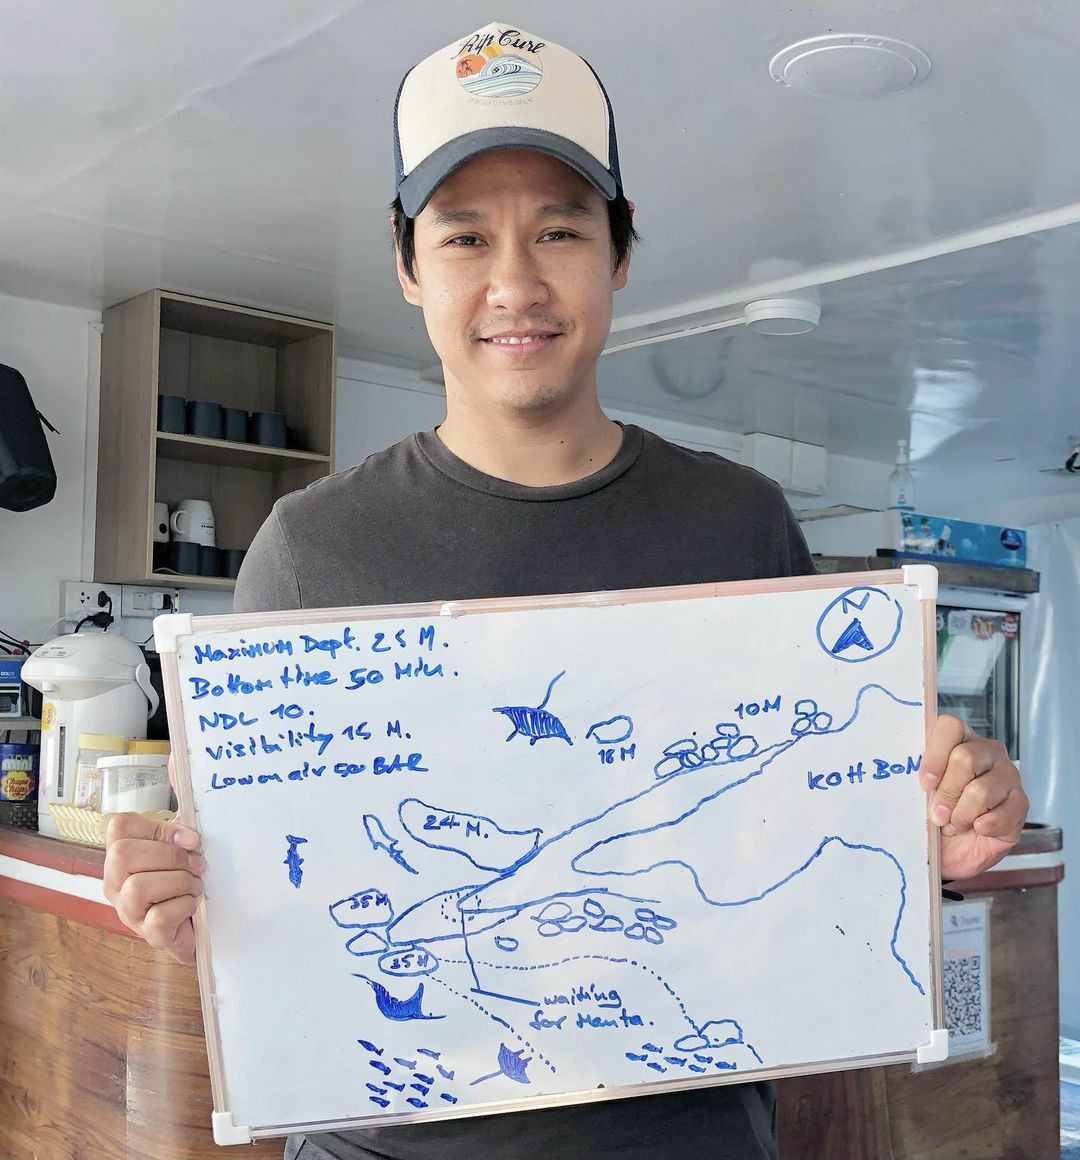 Rip Curl
Maximum Dept. 25 M.
Bottom time 50 Min.
NDL 10.
Visibility 15 M.
Low on air 50 BAR
N
10M
18M
KOH BON
24 M.
35M
35M
waiting
for Manta.
mini
Chupa
Chups